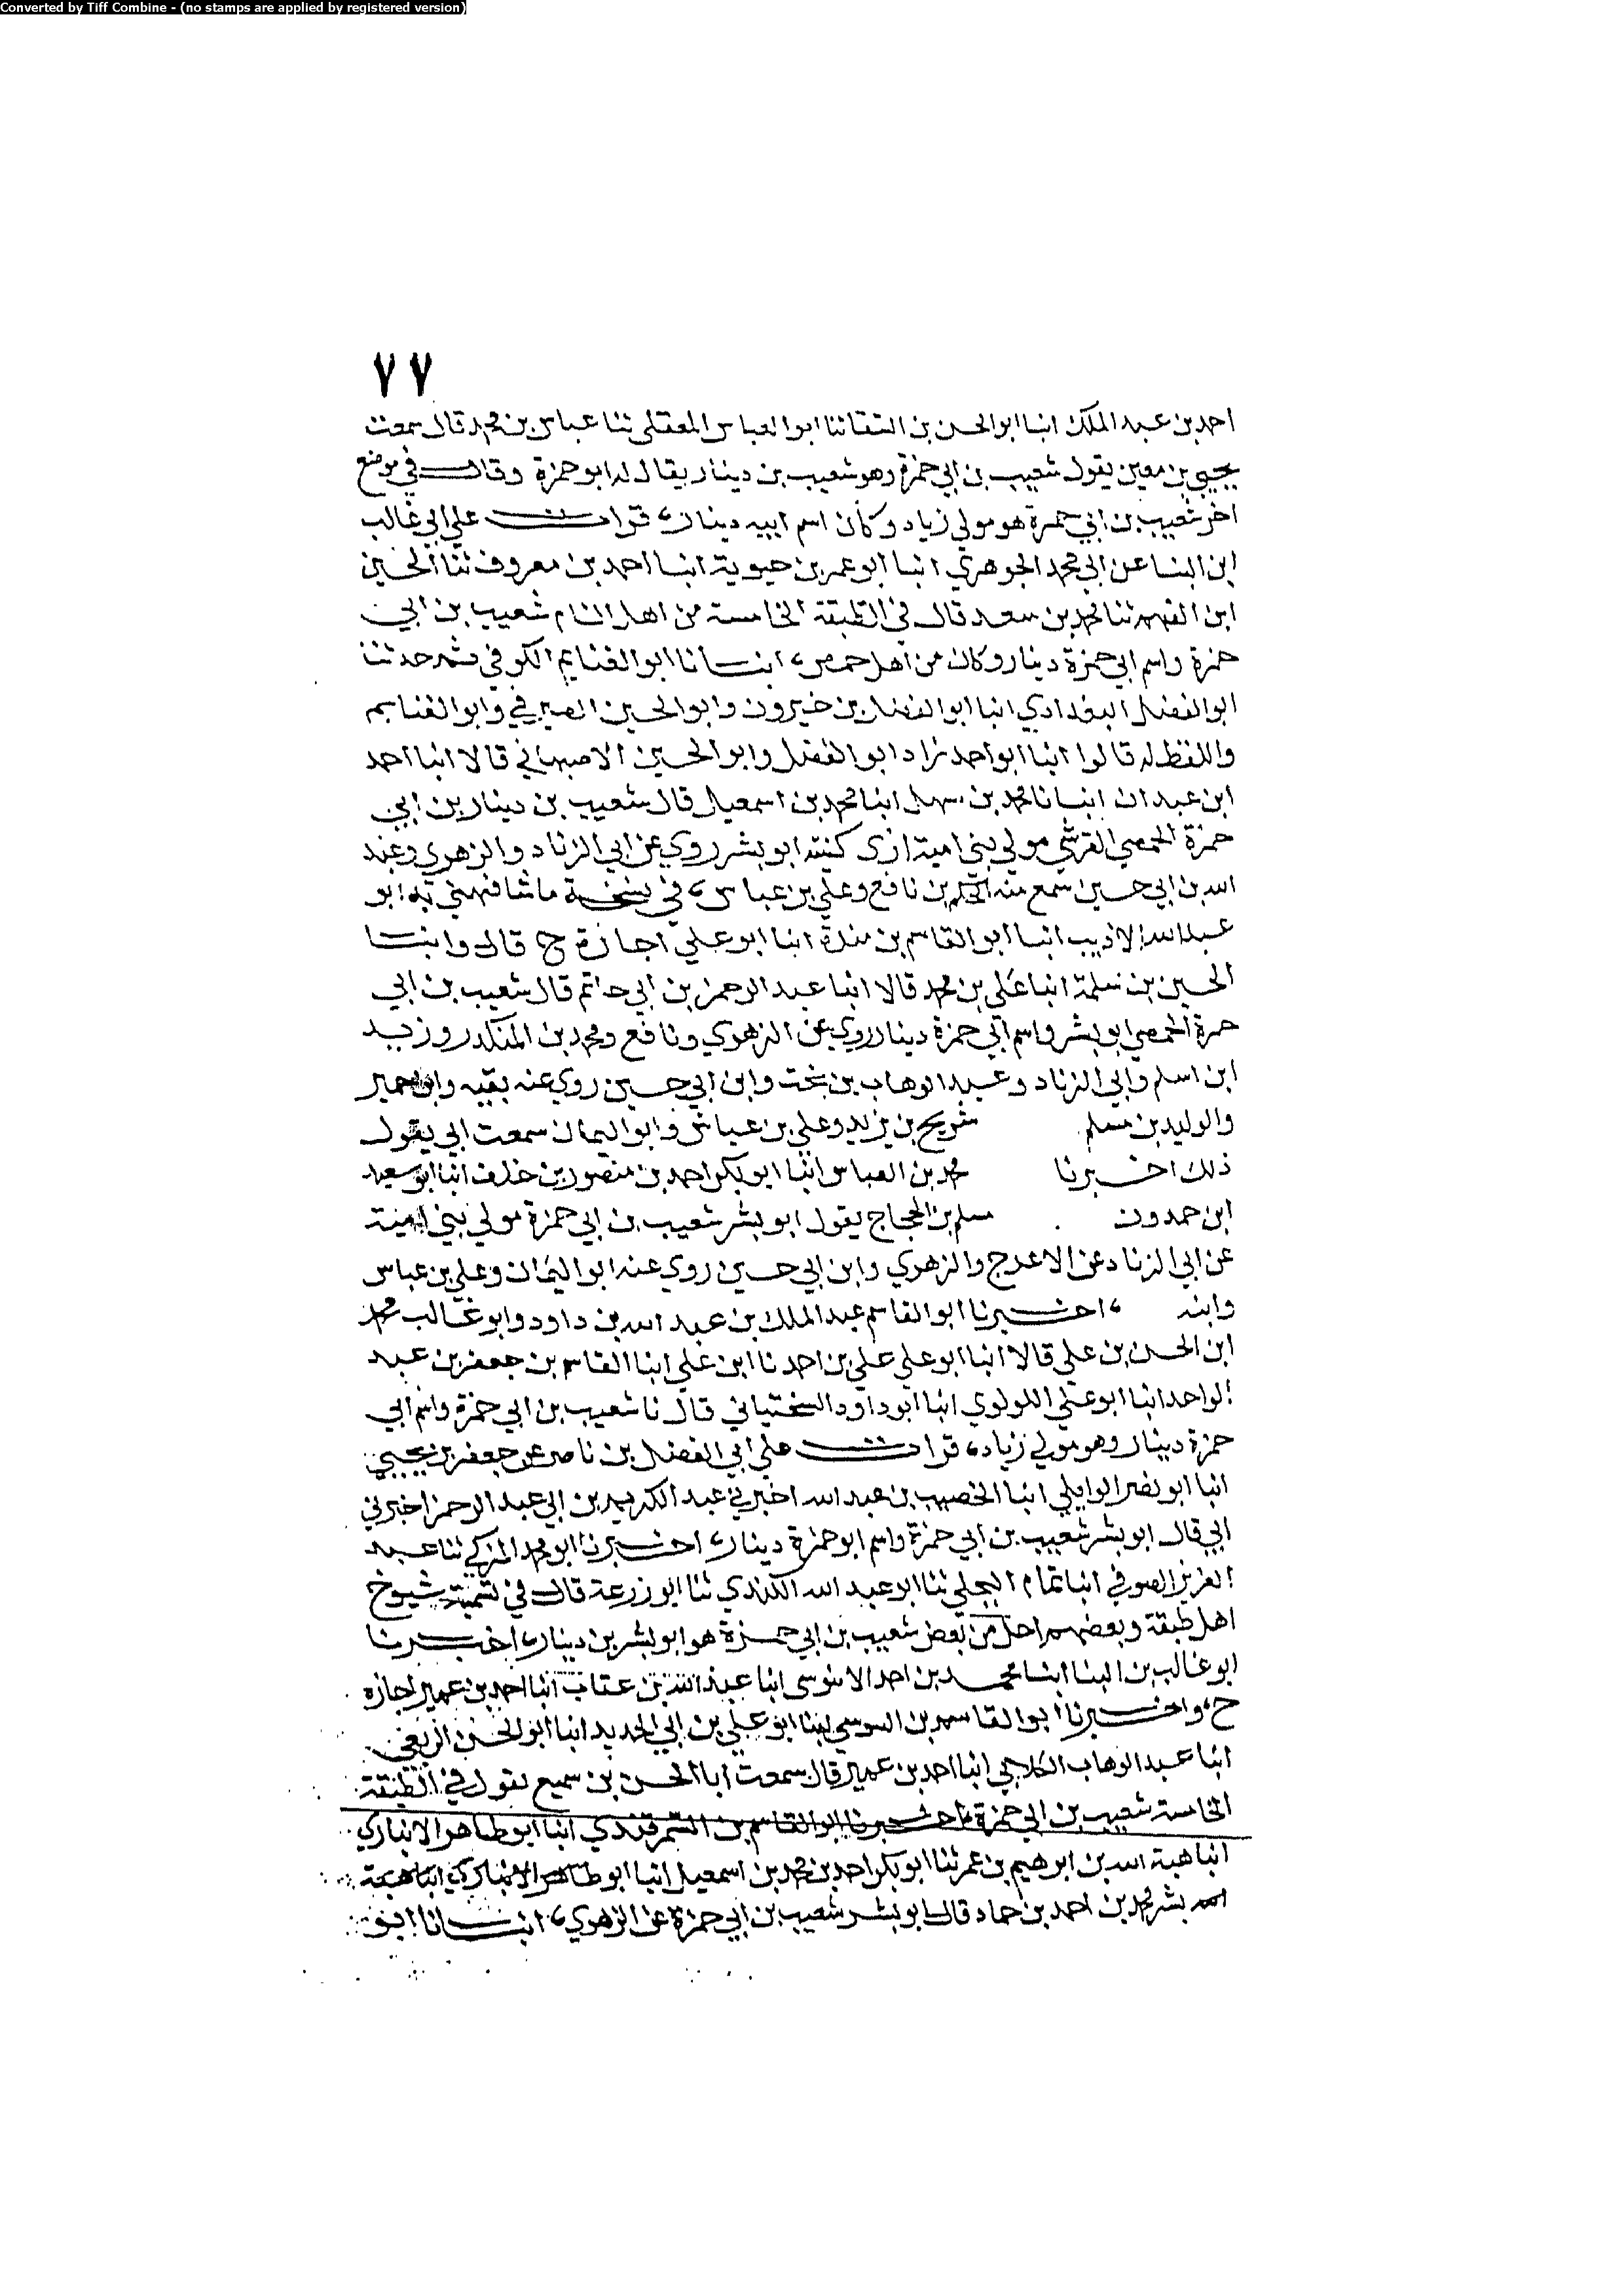 Converted by Tiff Combine - (no stamps are applied by registered version)
٧٧
احمد بن عبد الملك انبا ابو الحسن بن السقا ثنا ابو العباس المعقلي ثنا عباس بن محمد قال سمعت
يحيى بن معين يقول شعيب بن ابي حمزة وهو شعيب بن دينار يقال له ابو حمزة وقال في موضع
اخر شعيب بن ابي حمزة هو مولي زياد وكان اسم ابيه دينار، قرات علي ابي غالب
ابن البنا عن ابي محمد الجوهري انبا ابو عمر بن حيوية انبا احمد بن معروف ثنا الحسين
ابن الفهم ثنا محمد بن سعد قال في الطبقة الخامسة من اهل الشام شعيب بن ابي
حمزة واسم ابي حمزة دينار وكان من اهل حمص، انبانا ابو الغنايم الكوفي ثم حدثنا
ابو الفضل البغدادي انبا ابو الفضل بن خيرون وابو الحسين الصيرفي وابو الغنايم
واللفظ له قالوا انبا ابو احمد زاد ابو الفضل وابو الحسين الاصبهاني قالا انبا احمد
ابن عبدان انبانا محمد بن سهل انبا محمد بن اسمعيل قال شعيب بن دينار بن ابي
حمزة الحمصي القرشي مولي بني امية كنيته ابو بشر روي عن ابي الزناد والزهري وعبد
الله بن ابي حسين سمع منه الحكم بن نافع وعلي بن عباس، في نسخة ما شافهني به ابو
عبد الله الاديب انبا ابو القاسم بن مندة انبا ابو علي اجازة ح قال وانبا
الحسين بن سلمة انبا علي بن محمد قالا انبا عبد الرحمن بن ابي حاتم قال شعيب بن ابي
حمزة الحمصي ابو بشر واسم ابي حمزة دينار روي عن الزهري ونافع ومحمد بن المنكدر وزيد
ابن اسلم وابي الزناد وعبد الوهاب بن بخت وابن ابي حسين روي عنه بقيه وابن حمير
والوليد بن مسلم شريح بن يزيد وعلي بن عياش وابو اليمان سمعت ابي يقول
ذلك اخبرنا محمد بن العباس انبا ابو بكر احمد بن منصور بن خلف انبا ابو سعيد
ابن حمدون مسلم بن الحجاج يقول ابو بشر شعيب بن ابي حمزة مولي بني امية
عن ابي الزناد عن الاعرج والزهري وابن ابي حسين روي عنه ابو اليمان وعلي بن عباس
وابنه ، اخبرنا ابو القاسم عبد الملك بن عبد الله بن داود وابو غالب محمد
ابن الحسن بن علي قالا انبا ابو علي علي بن احمد نا ابن علي انبا القاسم بن جعفر بن عبد
الواحد انبا ابو علي اللولوي انبا ابو داود السختياني قال نا شعيب بن ابي حمزة واسم ابي
حمزة دينار وهو مولي زياد، قرات علي ابي الفضل بن ناصر عن جعفر بن يحيي
انبا ابو نصر الوايلي انبا الخصيب بن عبد الله اخبرني عبد الكريم بن ابي عبد الرحمن اخبرني
ابي قال ابو بشر شعيب بن ابي حمزة واسم ابو حمزة دينار، اخبرنا ابو محمد المزكي ثنا عبد
العزيز الصوفي انبا تمام البجلي ثنا ابو عبد الله الكندي ثنا ابو زرعة قال في تسمية شيوخ
اهل طبقة وبعضهم اجل من بعض شعيب بن ابي حمزة هو ابو بشر بن دينار، اخبرنا
ابو غالب بن البنا انبا محمد بن احمد الابنوسي انبا عبد الله بن عتاب انبا احمد بن عمير اجازه
ح، واخبرنا ابو القاسم بن السوسي انبا ابو علي بن ابي الحديد انبا ابو الحسن الربعي
انبا عبد الوهاب الكلابي انبا احمد بن عمير قال سمعت ابا الحسن بن سميع يقول في الطبقة
الخامسة شعيب بن ابي حمزة، اخبرنا ابو القاسم بن السمرقندي انبا ابو طاهر الانباري
انبا هبة الله بن ابرهيم بن عمر ثنا ابو بكر احمد بن محمد بن اسمعيل انبا ابو طاهر الانباري انبا هبة
الله بشر محمد بن احمد بن حماد قال ابو بشر شعيب بن ابي حمزة عن الزهري، انبانا ابو